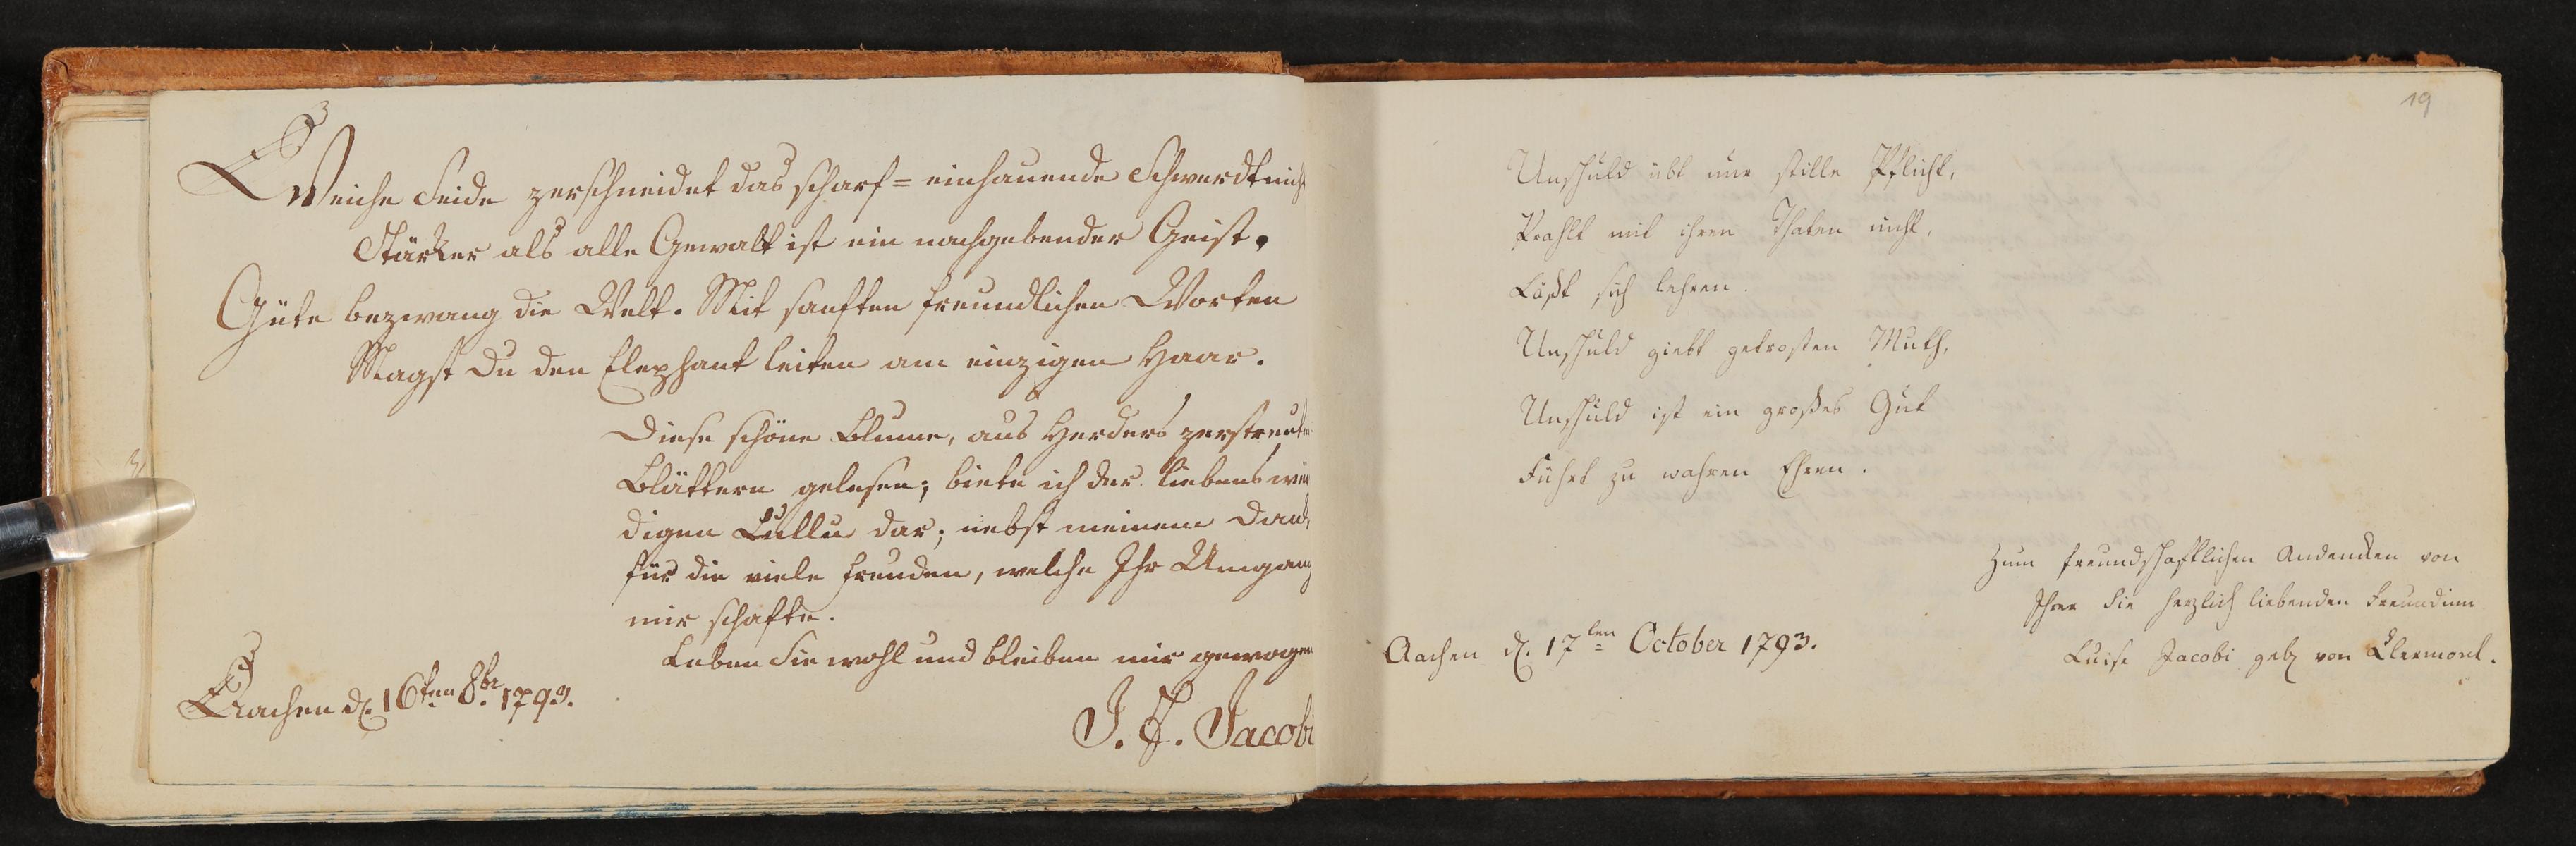 Weiche Seide zerschneidet das scharf=einhauende Schwerdt nicht
Stärker als alle Gewalt ist ein nachgebender Geist.
Güte bezwang die Welt. Mit sanften freundlichen Worten
Magst Du den Elephant leiten am einzigen Haar.
Diese schöne Blume, aus Herders zerstreuten
Blättern gelesen; biete ich der liebenswür
digen Lullu dar; nebst meinem Dank
für die viele Freuden, welche Ihr Umgang
mir schafte.
Leben Sie wohl und bleiben mir gewogen
Aachen d. 16ten 8br. 1793.
J. F. Jacobi
19
Unschuld übt nur stille Pflicht,
Prahlt mit ihren Thaten nicht,
Läßt sich lehren.
Unschuld giebt getrosten Muth,
Unschuld ist ein großes Gut
Führt zu wahren Ehren.
Zum freundschaftlichen Andencken von
Ihrer Sie herzlich liebenden Freundinn
Aachen d. 17ten October 1793.
Luise Jacobi geb von Clermont.